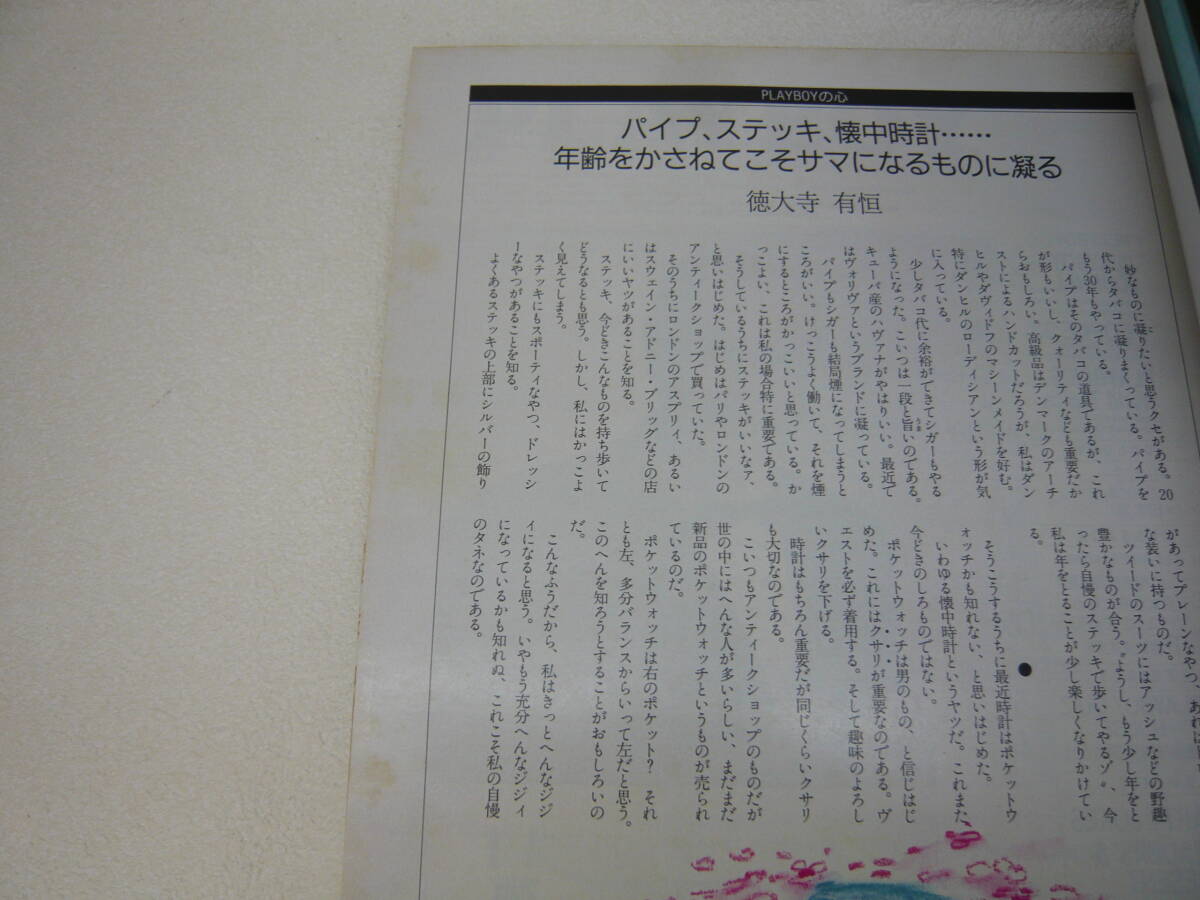 PLAYBOYの心
パイプ、ステッキ、懐中時計……
年齢をかさねてこそサマになるものに凝る
徳大寺 有恒
妙なものに凝りたいと思うクセがある。20
代からタバコに凝りまくっている。パイプを
もう30年もやっている。
パイプはそのタバコの道具であるが、これ
が形もいいし、クォーリティなども重要だか
らおもしろい。高級品はデンマークのアーチ
ストによるハンドカットだろうが、私はダン
ヒルやダヴィドフのマシーンメイドを好む。
特にダンヒルのローディシアンという形が気
に入っている。
少しタバコ代に余裕ができてシガーもやる
ようになった。こいつは一段と旨いのである。
キューバ産のハヴァナがやはりいい。最近で
はヴォリヴァというブランドに凝っている。
パイプもシガーも結局煙になってしまうと
ころがいい。けっこうよく働いて、それを煙
にするところがかっこいいと思っている。か
っこよい、これは私の場合特に重要である。
そうしているうちにステッキがいいなァ、
と思いはじめた。はじめはパリやロンドンの
アンティークショップで買っていた。
そのうちにロンドンのアスプリィ、あるい
はスウェイン・アドニー・ブリッグなどの店
にいいヤツがあることを知る。
ステッキ、今どきこんなものを持ち歩いて
どうなるとも思う。しかし、私にはかっこよ
く見えてしまう。
ステッキにもスポーティなやつ、ドレッシ
ーなやつがあることを知る。
よくあるステッキの上部にシルバーの飾り
があってプレーンなやつ、あれは
な装いに持つものだ。
ツイードのスーツにはアッシュなどの野趣
豊かなものが合う。“ようし、もう少し年をと
ったら自慢のステッキで歩いてやるゾ”、今
私は年をとることが少し楽しくなりかけてい
る。
●
そうこうするうちに最近時計はポケットウ
ォッチかも知れない、と思いはじめた。
いわゆる懐中時計というヤツだ。これまた
今どきのしろものではない。
ポケットウォッチは男のもの、と信じはじ
めた。これにはクサリが重要なのである。ヴ
ェストを必ず着用する。そして趣味のよろし
いクサリを下げる。
時計はもちろん重要だが同じくらいクサリ
も大切なのである。
こいつもアンティークショップのものだが
世の中にはへんな人が多いらしい、まだまだ
新品のポケットウォッチというものが売られ
ているのだ。
ポケットウォッチは右のポケット? それ
とも左、多分バランスからいって左だと思う。
このへんを知ろうとすることがおもしろいの
だ。
こんなふうだから、私はきっとへんなジジ
ィになると思う。いやもう充分へんなジジィ
になっているかも知れぬ、これこそ私の自慢
のタネなのである。